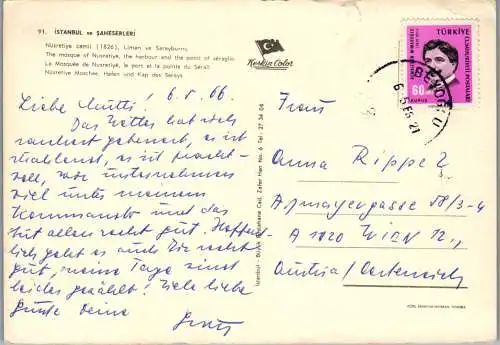 91. İSTANBUL ve ŞAHESERLERİ
Nusretiye camii (1826), Liman ve Sarayburnu
The mosque of Nusretiye, the harbour and the point of séraglio
La Mosquée de Nusretiyé, le port et la pointe du Sérail
Nusretiye Moschee, Hafen und Kap des Serays
Keskin Color
TÜRKİYE
CUMHURİYETİ POSTALARI
60
KURUŞ
BEYOĞLU
Liebe Mutti! 6.5.66
Das Wetter hat sich
gebessert, es ist
strahlend, es ist pracht-
voll, wir unternehmen
viel unter meinem
Kommando und das
tut allen recht gut. Hoffent-
lich geht es auch Dir recht
gut, meine Tage sind
leider gezählt! Viele liebe
Grüße Deine
Frau
Anna Rippel
Aßmayergasse 58/3-4
A 1120 WIEN 12.,
Austria/Oesterreich